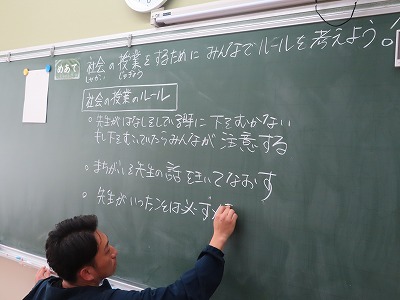 めあて 社会の授業をするためにみんなでルールを考えよう!
しゃかい じゅぎょう
社会の授業のルール
○先生がはなしをしている時に下をむかない
もし下をむいていたらみんなが注意する
○まちがいを先生の話をきいてなおす
○先生がいったことは必ず